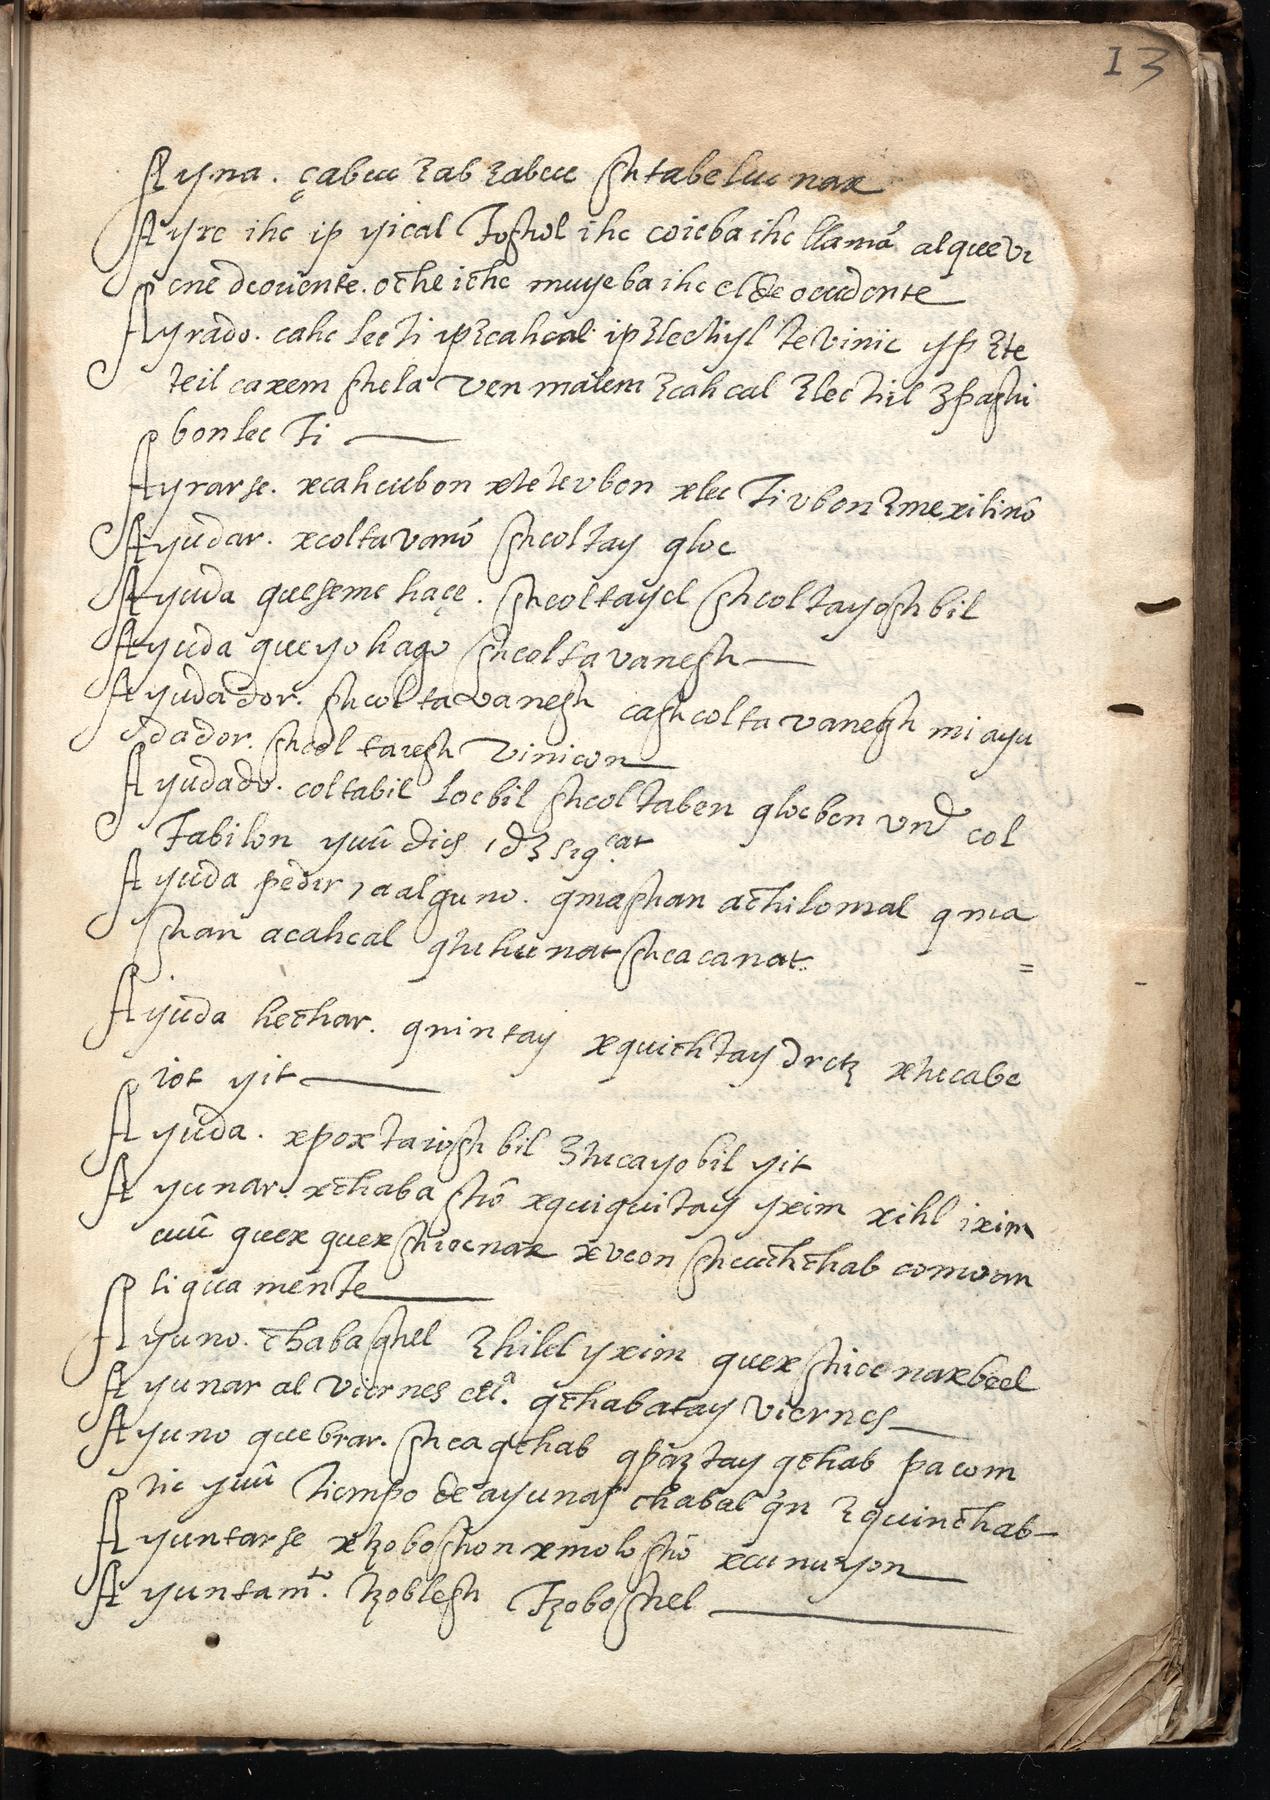 13
Ayna. çabuc Ɛab Ɛabuc shtabeluc nax
Ayre ihc ip yical Toshol ihc coieba ihc llamā al que vi
ene de oriente. oc̄he ic̄he muyeba ihc el de occidente
Ayrado. cahc lec ti ip Ɛcahcal ip Ɛlechyl te vinic yp Ɛte
teil caxem shela ven malem Ɛcahcal Ɛlec hil
bon lec Ti
Ayrarse. xcahcubon xte tevbon xlec Ti vbon Ɛmexilinō
Ayudar. xcoltavanō shcoltay qloc
Ayuda que se me haçe. shcoltayel shcoltayoshbil
Ayuda que yo hago shcoltavanesh
Ayudador. shcoltavanesh cashcoltavanesh mi ayu
dador. shcoltaiesh vinicon
Ayudado. coltabil locbil shcoltaben qlocben vnd col
Tabilon yuū dios
Ayuda pedir, a alguno. qmashan ac̄hilomal qma
shan acahcal qhihunat shcacanat
Ayuda hec̄har. qnintay xquic̄htay dretz xhicabe
iot yit
Ayuda. xpoxtaiosh bil Ɛhicayobil yit
Ayunar. xc̄haba shō xquiquitay yxim xihl ixim
cuū quex quex shiocnax xvcon shcuc̄hc̄hab comoan
ligua mente
Ayuno. c̄habashel Ɛhilel yxim quex shioc naxbeel
Ayunar al viernes etā. qc̄habatay viernes
Ayuno quebrar. shcaqc̄hab qpaztay qc̄hab pa com
tic yuū Tiempo de ayunas c̄habal qn Ɛquinc̄hab
Ayuntarse xtzoboshon xmoloshō xcunuyon
Ayuntamto. tzoblesh Tzoboshel